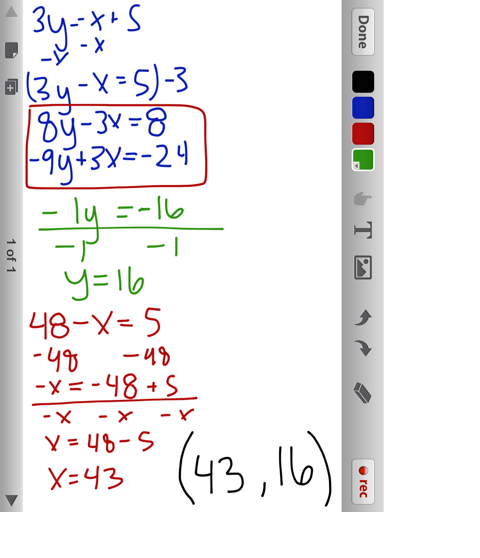 3y - -x + 5
-x -x
(3y - x = 5) -3
8y - 3x = 8
-9y + 3x = -24
- 1y = -16
-1 -1
y = 16
48 - x = 5
-48 -48
-x = -48 + 5
-x -x -x
x = 48 - 5
x = 43
(43, 16)
1 of 1
Done
T
rec